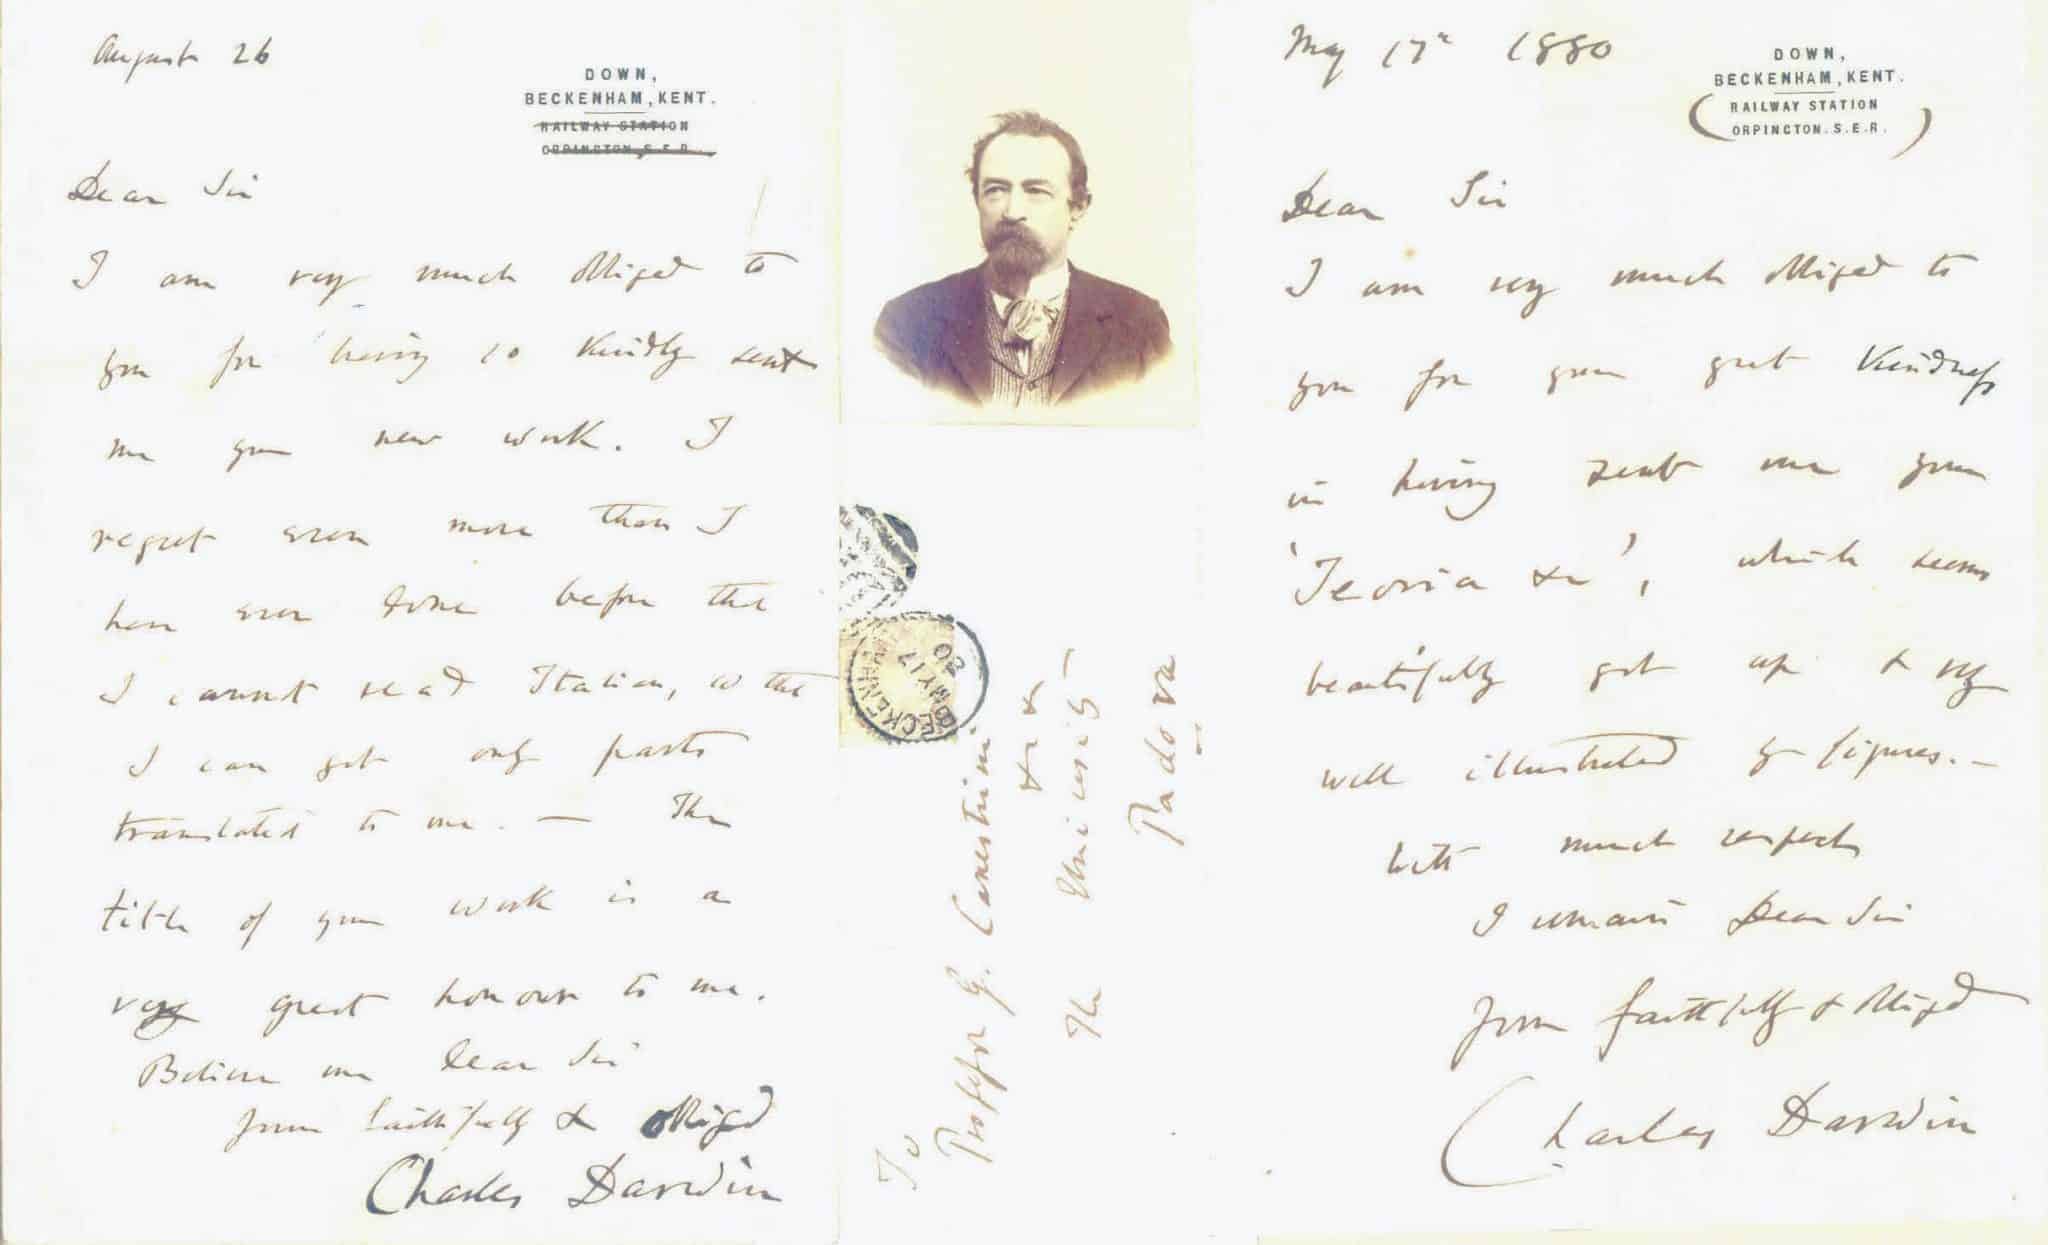 August 26
DOWN,
BECKENHAM, KENT.
RAILWAY STATION
ORPINGTON. S.E.R.
Dear Sir
I am very much obliged to
you for having so kindly sent
me your new work. I
regret even more than I
have ever done before that
I cannot read Italian, so that
I can get only parts
translated to me. — The
title of your work is a
very great honour to me.
Believe me Dear Sir
yours faithfully & obliged
Charles Darwin
BECKENHAM
MY 17
80
To
Professor G. Canestrini
&c &c
The University
Padova
May 17th 1880
DOWN,
BECKENHAM, KENT.
(RAILWAY STATION
ORPINGTON. S.E.R.)
Dear Sir
I am very much obliged to
you for your great kindness
in having sent me your
'Teoria &c', which seems
beautifully got up & very
well illustrated by figures. —
With much respect
I remain Dear Sir
Yours faithfully & obliged
Charles Darwin